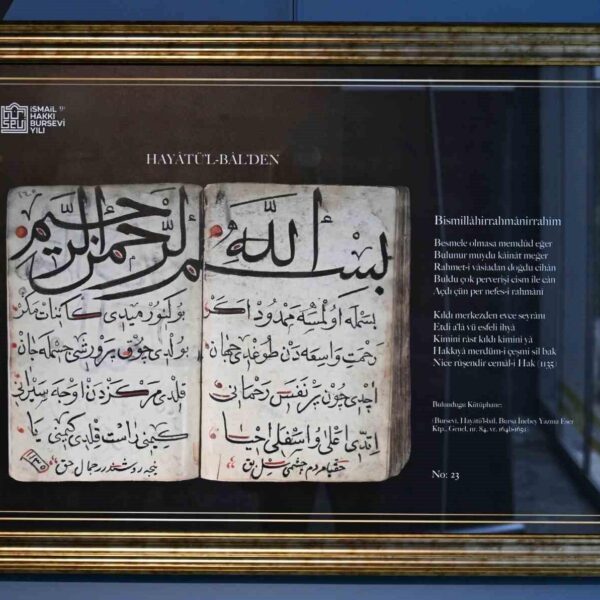 İSMAİL
HAKKI
BURSEVİ
YILI
HAYÂTÜ'L-BÂL'DEN
بسم الله الرحمن الرحيم
بسمله اولمسه ممدود اكر
بولنور ميدى كائنات مكر
رحمت واسعه دن طوغدى جهان
بولدى چوق پرورشى جسمله جان
آچدى چون بر نفس رحمانى
قلدى مركزدن اوجه سيرانى
ايتدى اعلى و اسفلى احيا
كيمنى راست قلدى كيمنى يا
حقيا مردم چشمى سل بق
نيجه روشندر جمال حق
١١٣٥
Bismillâhirrahmânirrahîm
Besmele olmasa memdûd eğer
Bulunur muydu kâinât meğer
Rahmet-i vâsiadan doğdu cihân
Buldu çok perverişi cism ile cân
Açdı çün per nefes-i rahmânî
Kıldı merkezden evce seyrânı
Etdi a'lâ vü esfeli ihyâ
Kimini râst kıldı kimini yâ
Hakkıyâ merdüm-i çeşmi sil bak
Nice rûşendir cemâl-i Hak (1135)
Bulunduğu Kütüphane:
(Bursevi, Hayâtü'l-bâl, Bursa İnebey Yazma Eser
Ktp., Genel, nr. 84, vr. 164b-165a).
No: 23